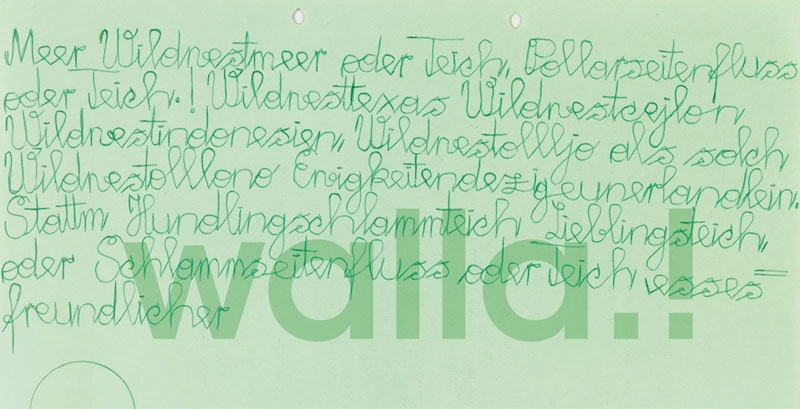 Meer Wildnestmeer oder Teich,, Pollarseitenfluss
oder Teich.! Wildnesttexas Wildnestcejlon
Wildnestindonesien,, Wildnestollljo als solch
Wildnestolllono Enigkeitendezigeunerlandlein.
Stattm Hundlingschlammteich Lieblingsteich,,
oder Schlammseitenfluss oder Teich esses=
freundlicher
walla.!